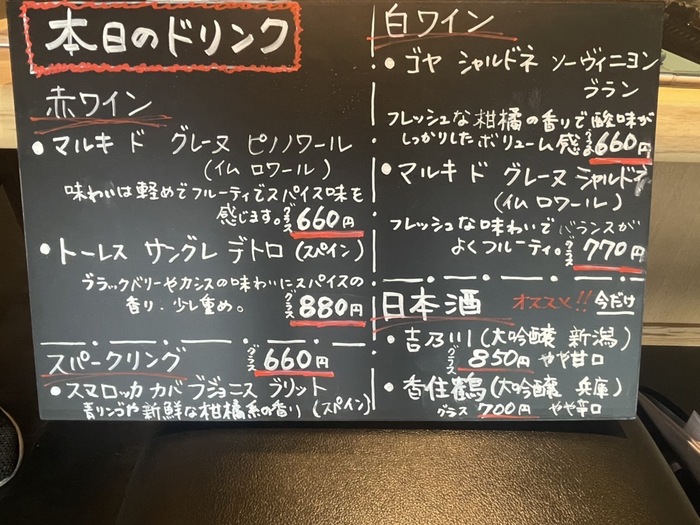 本日のドリンク
赤ワイン
• マルキ ド グレーヌ ピノノワール
(イム ロワール)
味わいは軽めでフルーティでスパイス味も
感じます。グラス 660円
• トーレス サングレ デトロ (スペイン)
ブラックベリーやカシスの味わいにスパイスの
香り、少し重め。 グラス 880円
スパークリング グラス 660円
• スマロッカ カバ ブジョニス ブリット
青リンゴや新鮮な柑橘系の香り (スペイン)
白ワイン
• ゴヤ シャルドネ ソーヴィニヨン
ブラン
フレッシュな柑橘の香りで酸味が
しっかりしたボリューム感 グラス 660円
• マルキ ド グレーヌ シャルドネ
(イム ロワール)
フレッシュな味わいでバランスが
よくフルーティ。グラス 770円
日本酒 オススメ!! 今だけ
• 吉乃川 (大吟醸 新潟)
グラス 850円 やや甘口
• 香住鶴 (大吟醸 兵庫)
グラス 700円 やや辛口